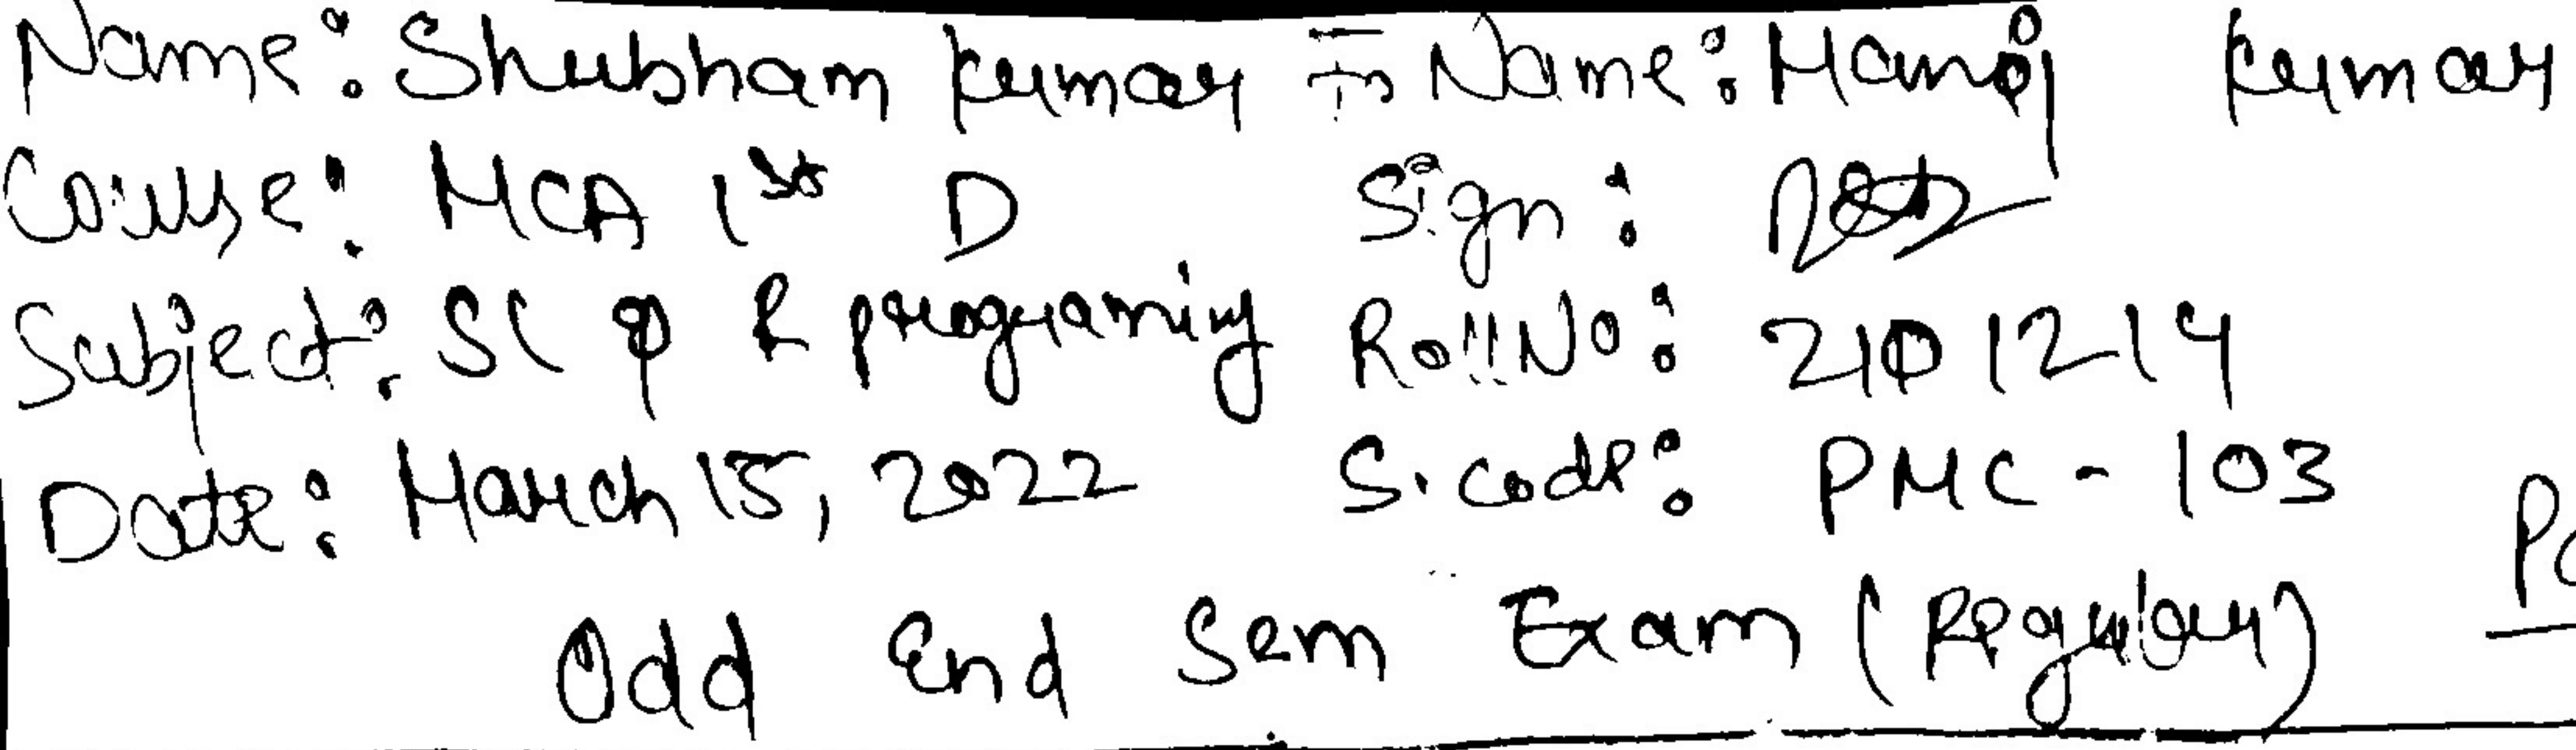 Name: Shubham Kumar F Name: Manoj Kumar
Course: MCA 1st D Sign:
Subject: SC & R programing Roll No: 2101214
Date: March 15, 2022 S. Code: PMC - 103
Odd End Sem Exam (Regular)